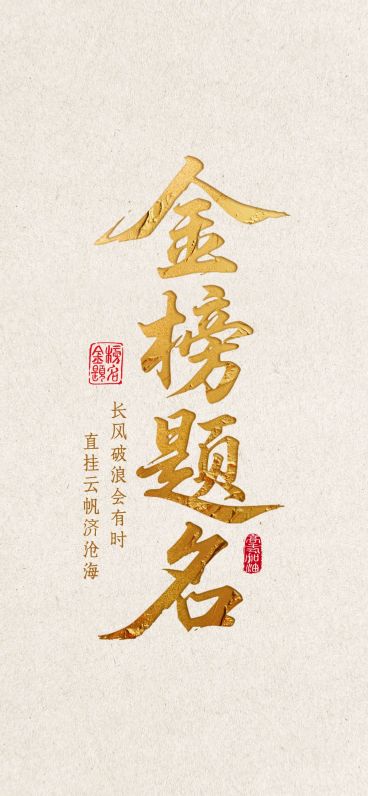 金榜题名
金榜题名
长风破浪会有时
直挂云帆济沧海
高考加油